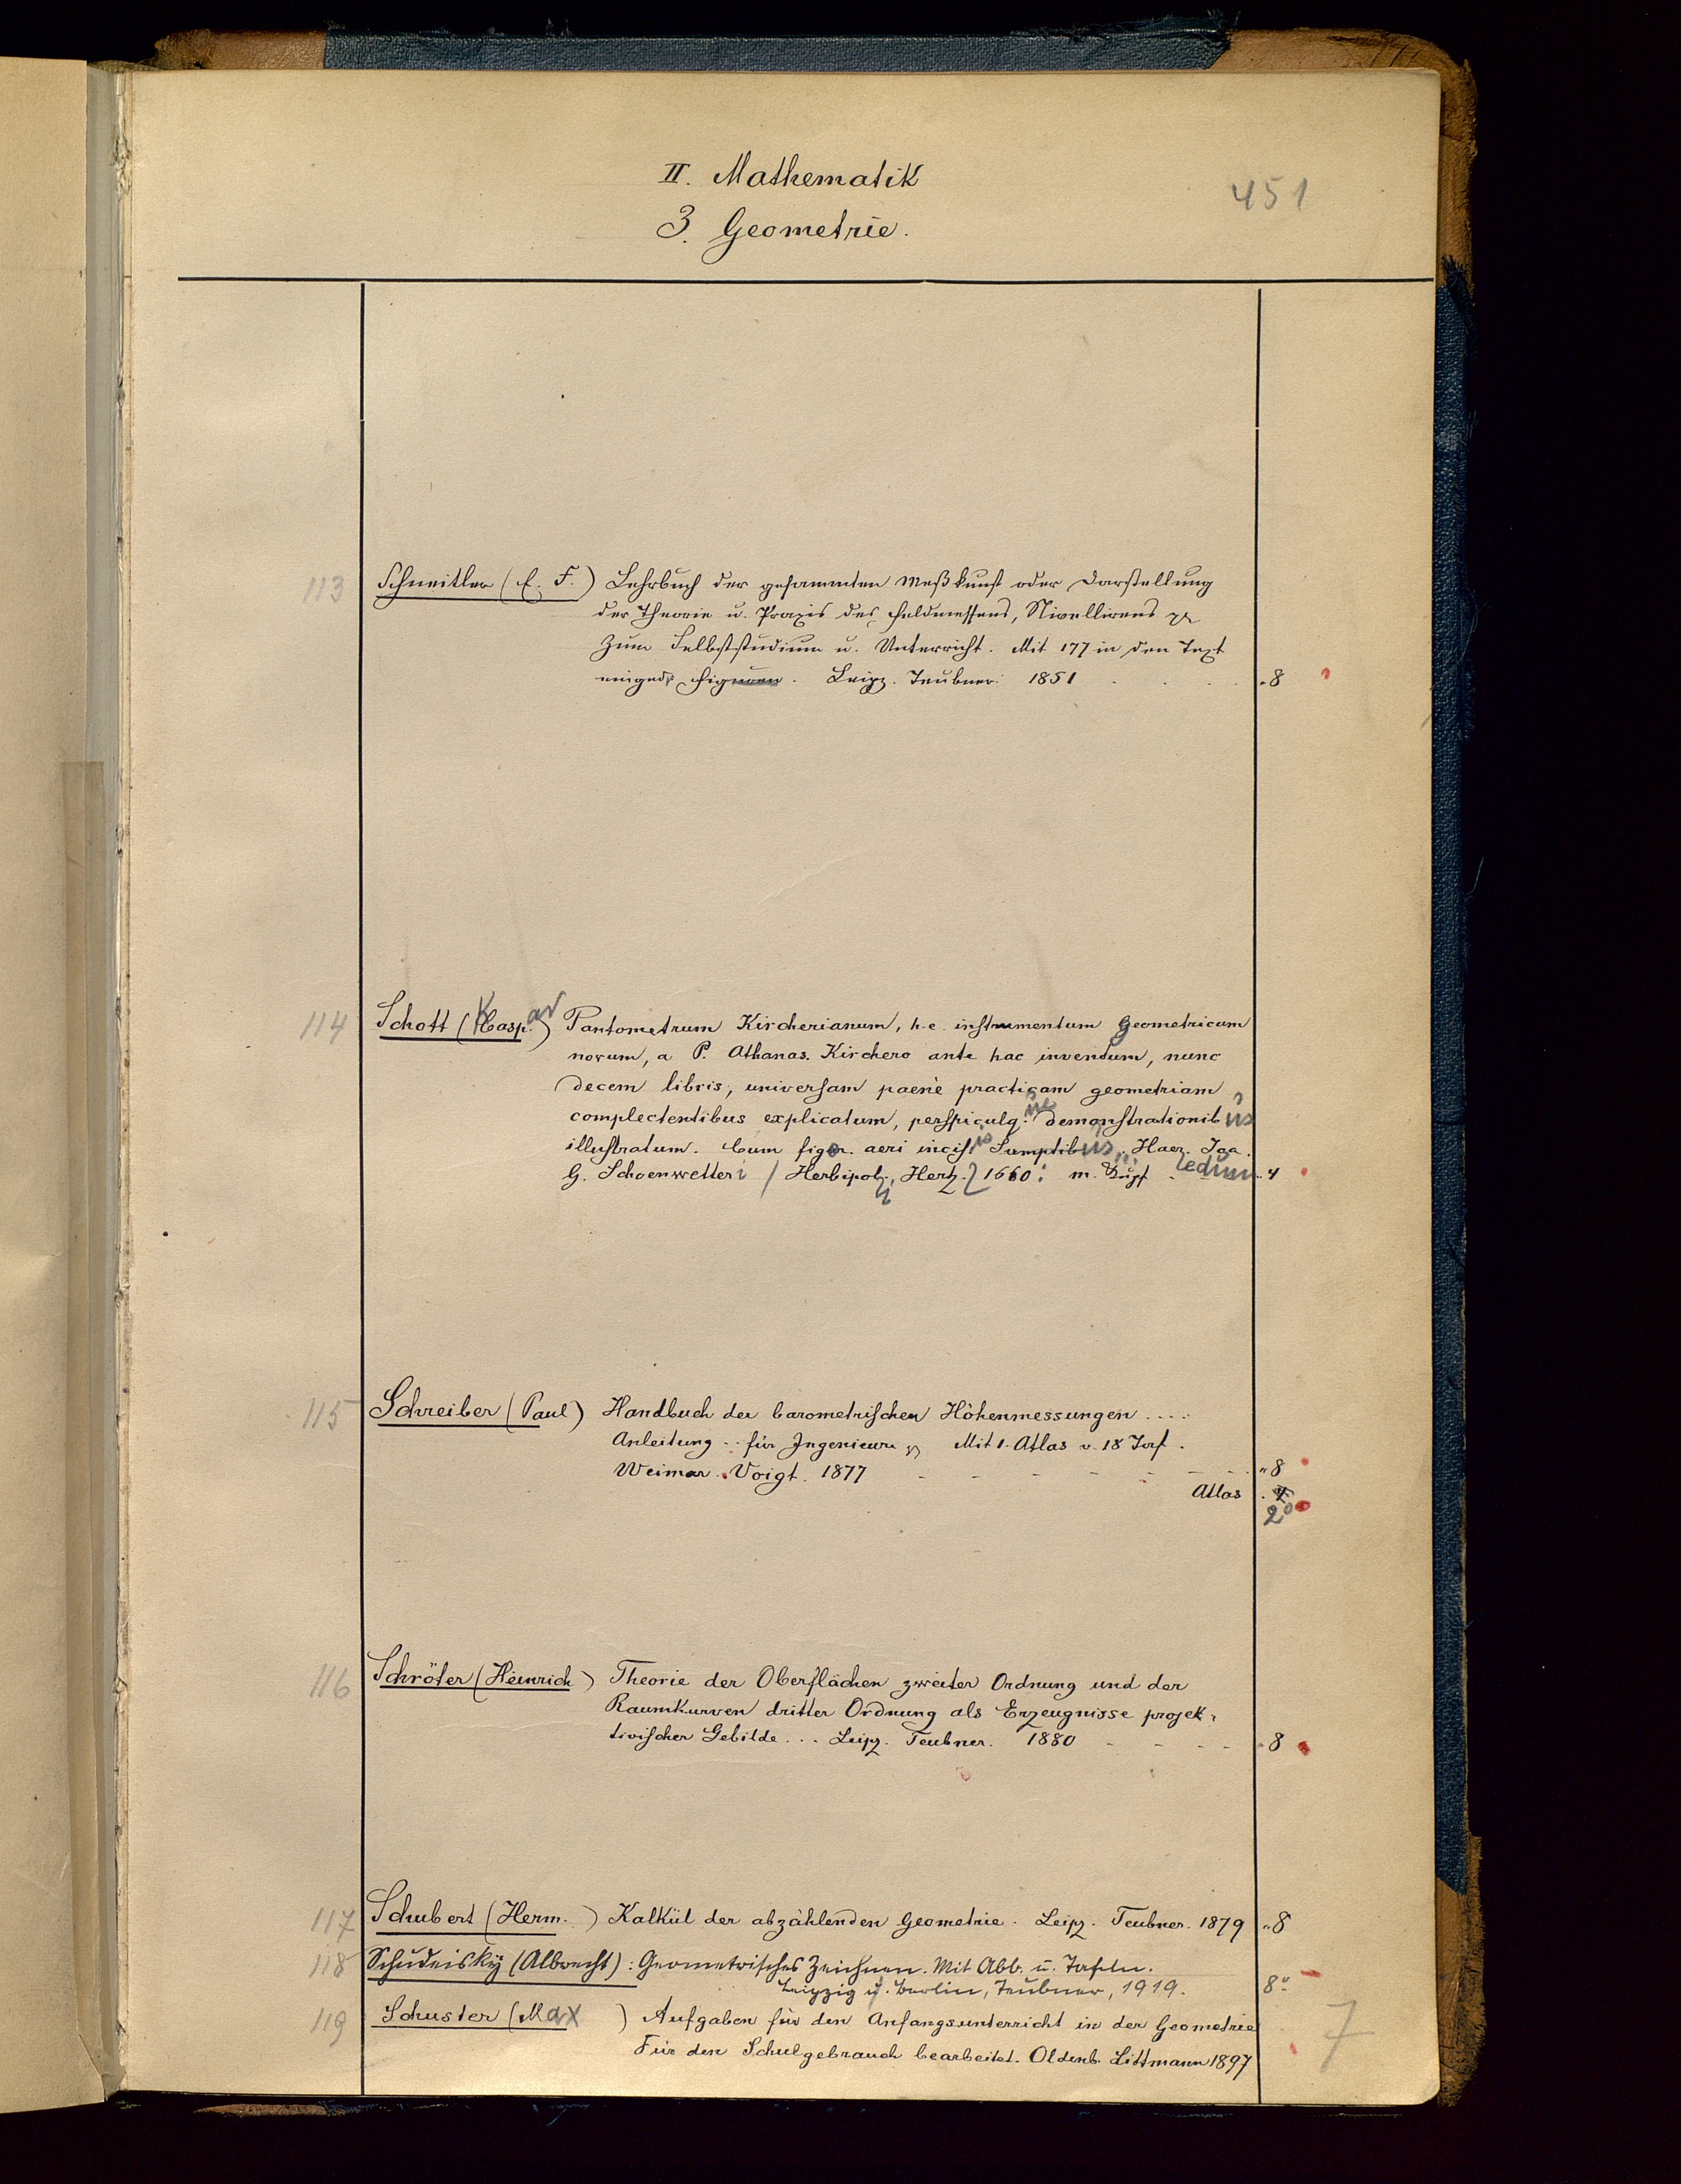 II. Mathematik
451
3. Geometrie.
113 Schneitler (C. F.) Lehrbuch der gesammten Meßkunst oder Darstellung
der Theorie u. Praxis des Feldmessens, Nivellirens
zum Selbststudium u. Unterricht. Mit 177 in den Text
eingedr. Figuren. Leipz. Teubner. 1851 8
114 Schott (Kaspar) Pantometrum Kircherianum, h. e. instrumentum geometricum
novum, a P. Athanas. Kirchero ante hac inventum, nunc
decem libris, universam paene practicam geometriam
complectentibus explicatum, perspicuisq. demonstrationibus
illustratum. Cum figr. aeri incisis Sumptibus Haeredum Joa.
G. Schoenwetteri / Herbipoli, Hertz. 1660. m. Kupf. 4
115 Schreiber (Paul) Handbuch der barometrischen Höhenmessungen ....
Anleitung .. für Ingenieure Mit 1. Atlas v. 18 Taf.
Weimar. Voigt. 1877 - - - - - - - 8
Atlas 4
2°
116 Schröter (Heinrich) Theorie der Oberflächen zweiter Ordnung und der
Raumkurven dritter Ordnung als Erzeugnisse projek-
tivischer Gebilde ... Leipz. Teubner. 1880 - - - - 8
117 Schubert (Herm.) Kalkül der abzählenden Geometrie. Leipz. Teubner. 1879 8
118 Schudeisky (Albrecht): Geometrisches Zeichnen. Mit Abb. u. Tafeln.
Leipzig u. Berlin, Teubner, 1919. 8°
119 Schuster (Max) Aufgaben für den Anfangsunterricht in der Geometrie
Für den Schulgebrauch bearbeitet. Oldenb. Littmann 1897
7